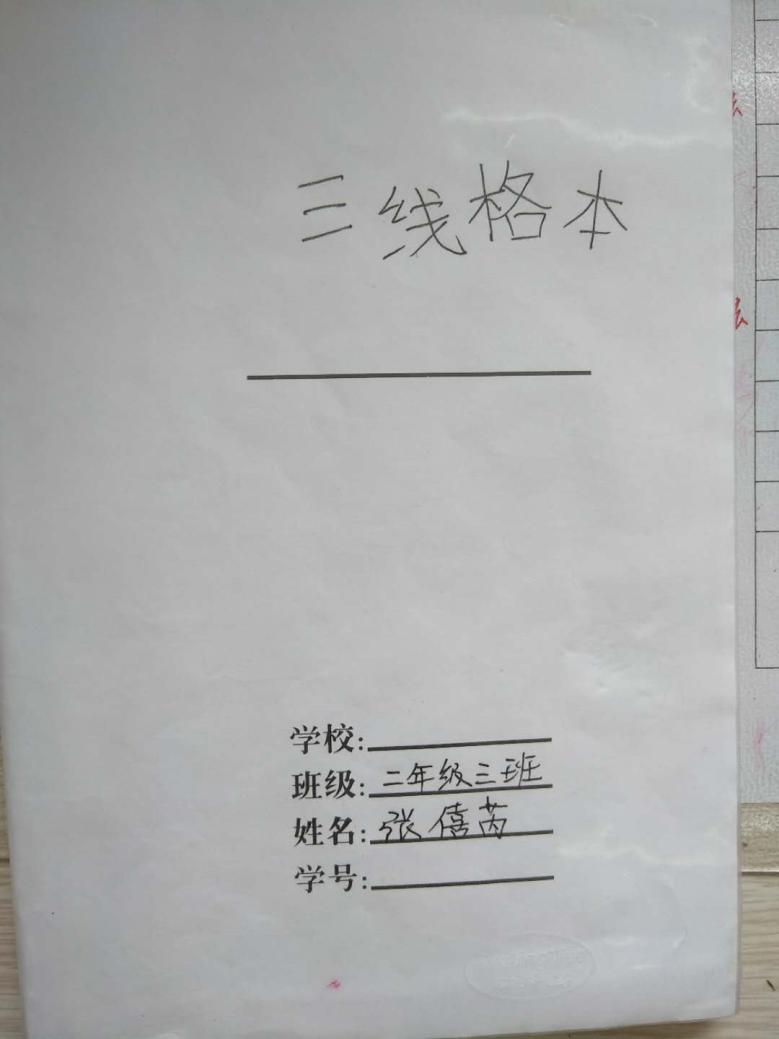 三线格本
学校:
班级:二年级三班
姓名:张僖芮
学号: